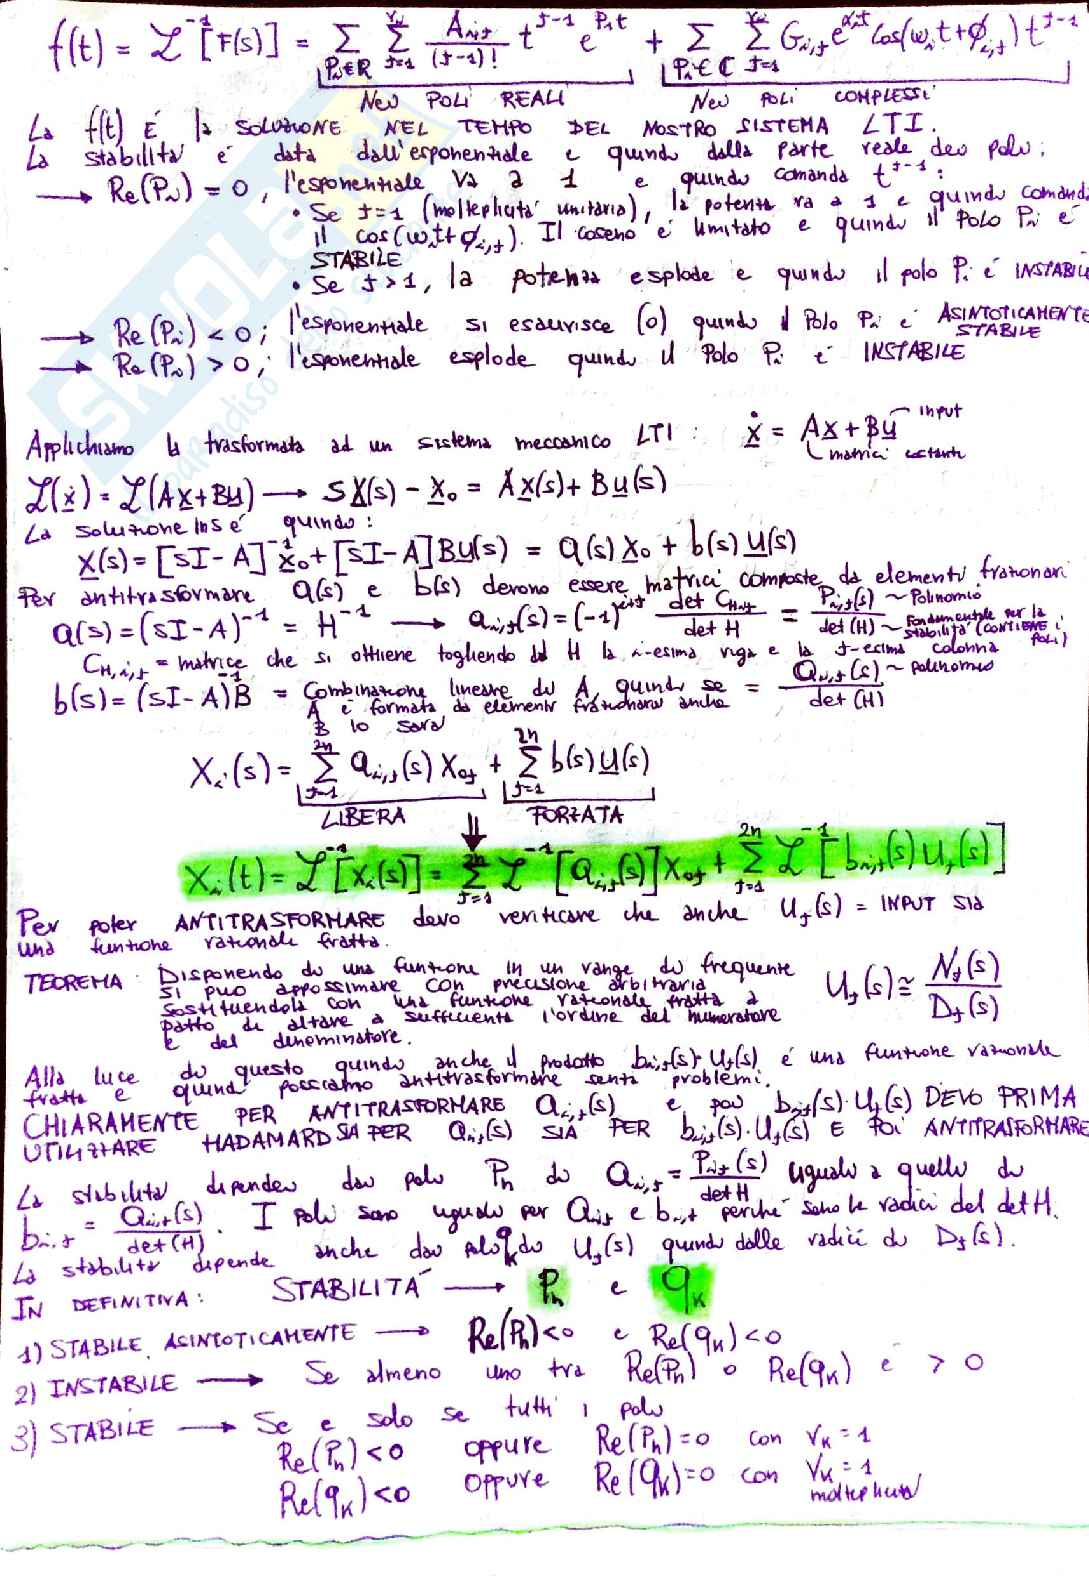 f(t) = ℒ⁻¹[F(s)] = Σ_{Pi∈ℝ} Σ_{j=1}^{νi} A_{i,j}/(j-1)! t^{j-1} e^{Pi t} + Σ_{Pi∈ℂ} Σ_{j=1}^{νi} G_{i,j} e^{αi t} cos(ωi t+φ_{i,j}) t^{j-1}
Nei POLI REALI Nei POLI COMPLESSI
La f(t) È la SOLUZIONE NEL TEMPO DEL NOSTRO SISTEMA LTI.
La stabilità è data dall'esponenziale e quindi dalla parte reale dei poli:
→ Re(Pi) = 0, l'esponenziale va a 1 e quindi comanda t^{j-1}:
• Se j=1 (molteplicità unitaria), la potenza va a 1 e quindi comanda
il cos(ωi t+φ_{i,j}). Il coseno è limitato e quindi il polo Pi è
STABILE
• Se j>1, la potenza esplode e quindi il polo Pi è INSTABILE
→ Re(Pi) < 0; l'esponenziale si esaurisce (0) quindi il Polo Pi è ASINTOTICAMENTE
STABILE
→ Re(Pi) > 0; l'esponenziale esplode quindi il Polo Pi è INSTABILE
SKUOLA
paradiso
Applichiamo la trasformata ad un sistema meccanico LTI: ẋ = Ax+Bu input
matrici costanti
ℒ(ẋ) = ℒ(Ax+Bu) → sX(s) - x₀ = Ax(s)+Bu(s)
La soluzione in s è quindi:
X(s) = [sI-A]⁻¹x₀+[sI-A]Bu(s) = a(s)x₀ + b(s)U(s)
Per antitrasformare a(s) e b(s) devono essere matrici composte da elementi frazionari
a(s) = (sI-A)⁻¹ = H⁻¹ → a_{i,j}(s) = (-1)^{i+j} det C_{H,i,j}/det H = P_{i,j}(s)/det(H) ~ Polinomio
~ Fondamentale per la
stabilità (CONTIENE i
poli)
C_{H,i,j} = matrice che si ottiene togliendo ad H la i-esima riga e la j-esima colonna
b(s) = (sI-A)⁻¹B = Combinazione lineare di A, quindi se = Q_{i,j}(s)/det(H) ~ polinomio
A è formata da elementi frazionari anche
B lo sarà
Xi(s) = Σ_{j=1}^{2n} a_{i,j}(s) X₀j + Σ_{j=1}^{2n} b(s)U(s)
LIBERA FORZATA
⇓
Xi(t) = ℒ⁻¹[Xi(s)] = Σ_{j=1}^{2n} ℒ⁻¹[a_{i,j}(s)]X₀j + Σ_{j=1}^{2n} ℒ⁻¹[b_{i,j}(s)Uj(s)]
Per poter ANTITRASFORMARE devo verificare che anche Uj(s) = INPUT SIA
una funzione razionale fratta.
TEOREMA: Disponendo di una funzione in un range di frequenze
si può appossimare con precisione arbitraria
sostituendola con una funzione razionale fratta a
patto di alzare a sufficienza l'ordine del numeratore
e del denominatore.
Uj(s) ≅ Nj(s)/Dj(s)
Alla luce di questo quindi anche il prodotto b_{i,j}(s)·Uj(s) è una funzione razionale
fratta e quindi possiamo antitrasformare senza problemi.
CHIARAMENTE PER ANTITRASFORMARE a_{i,j}(s) e poi b_{i,j}(s)·Uj(s) DEVO PRIMA
UTILIZZARE HADAMARD SIA PER a_{i,j}(s) SIA PER b_{i,j}(s)·Uj(s) E POI ANTITRASFORMARE
La stabilità dipende dai poli Ph di a_{i,j} = P_{i,j}(s)/det H uguali a quelli di
b_{i,j} = Q_{i,j}(s)/det(H). I poli sono uguali per a_{i,j} e b_{i,j} perché sono le radici del det H.
La stabilità dipende anche dai poli qk di Uj(s) quindi dalle radici di Dj(s).
IN DEFINITIVA: STABILITÀ → Ph e qk
1) STABILE ASINTOTICAMENTE → Re(Ph)<0 e Re(qk)<0
2) INSTABILE → Se almeno uno tra Re(Ph) o Re(qk) è > 0
3) STABILE → Se e solo se tutti i poli
Re(Ph)<0 oppure Re(Ph)=0 con νk = 1
Re(qk)<0 oppure Re(qk)=0 con νk = 1
molteplicità